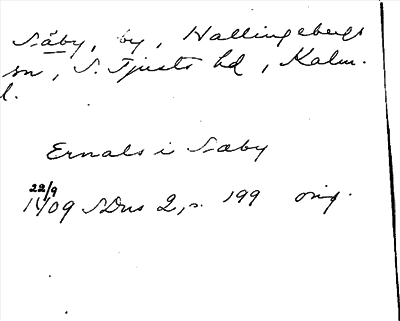 Säby, by, Hallingebergs
sn, S. Tjusts hd, Kalm.
l.
Ernals i Sæby
22/9
1409 SDns 2, s. 199 orig.